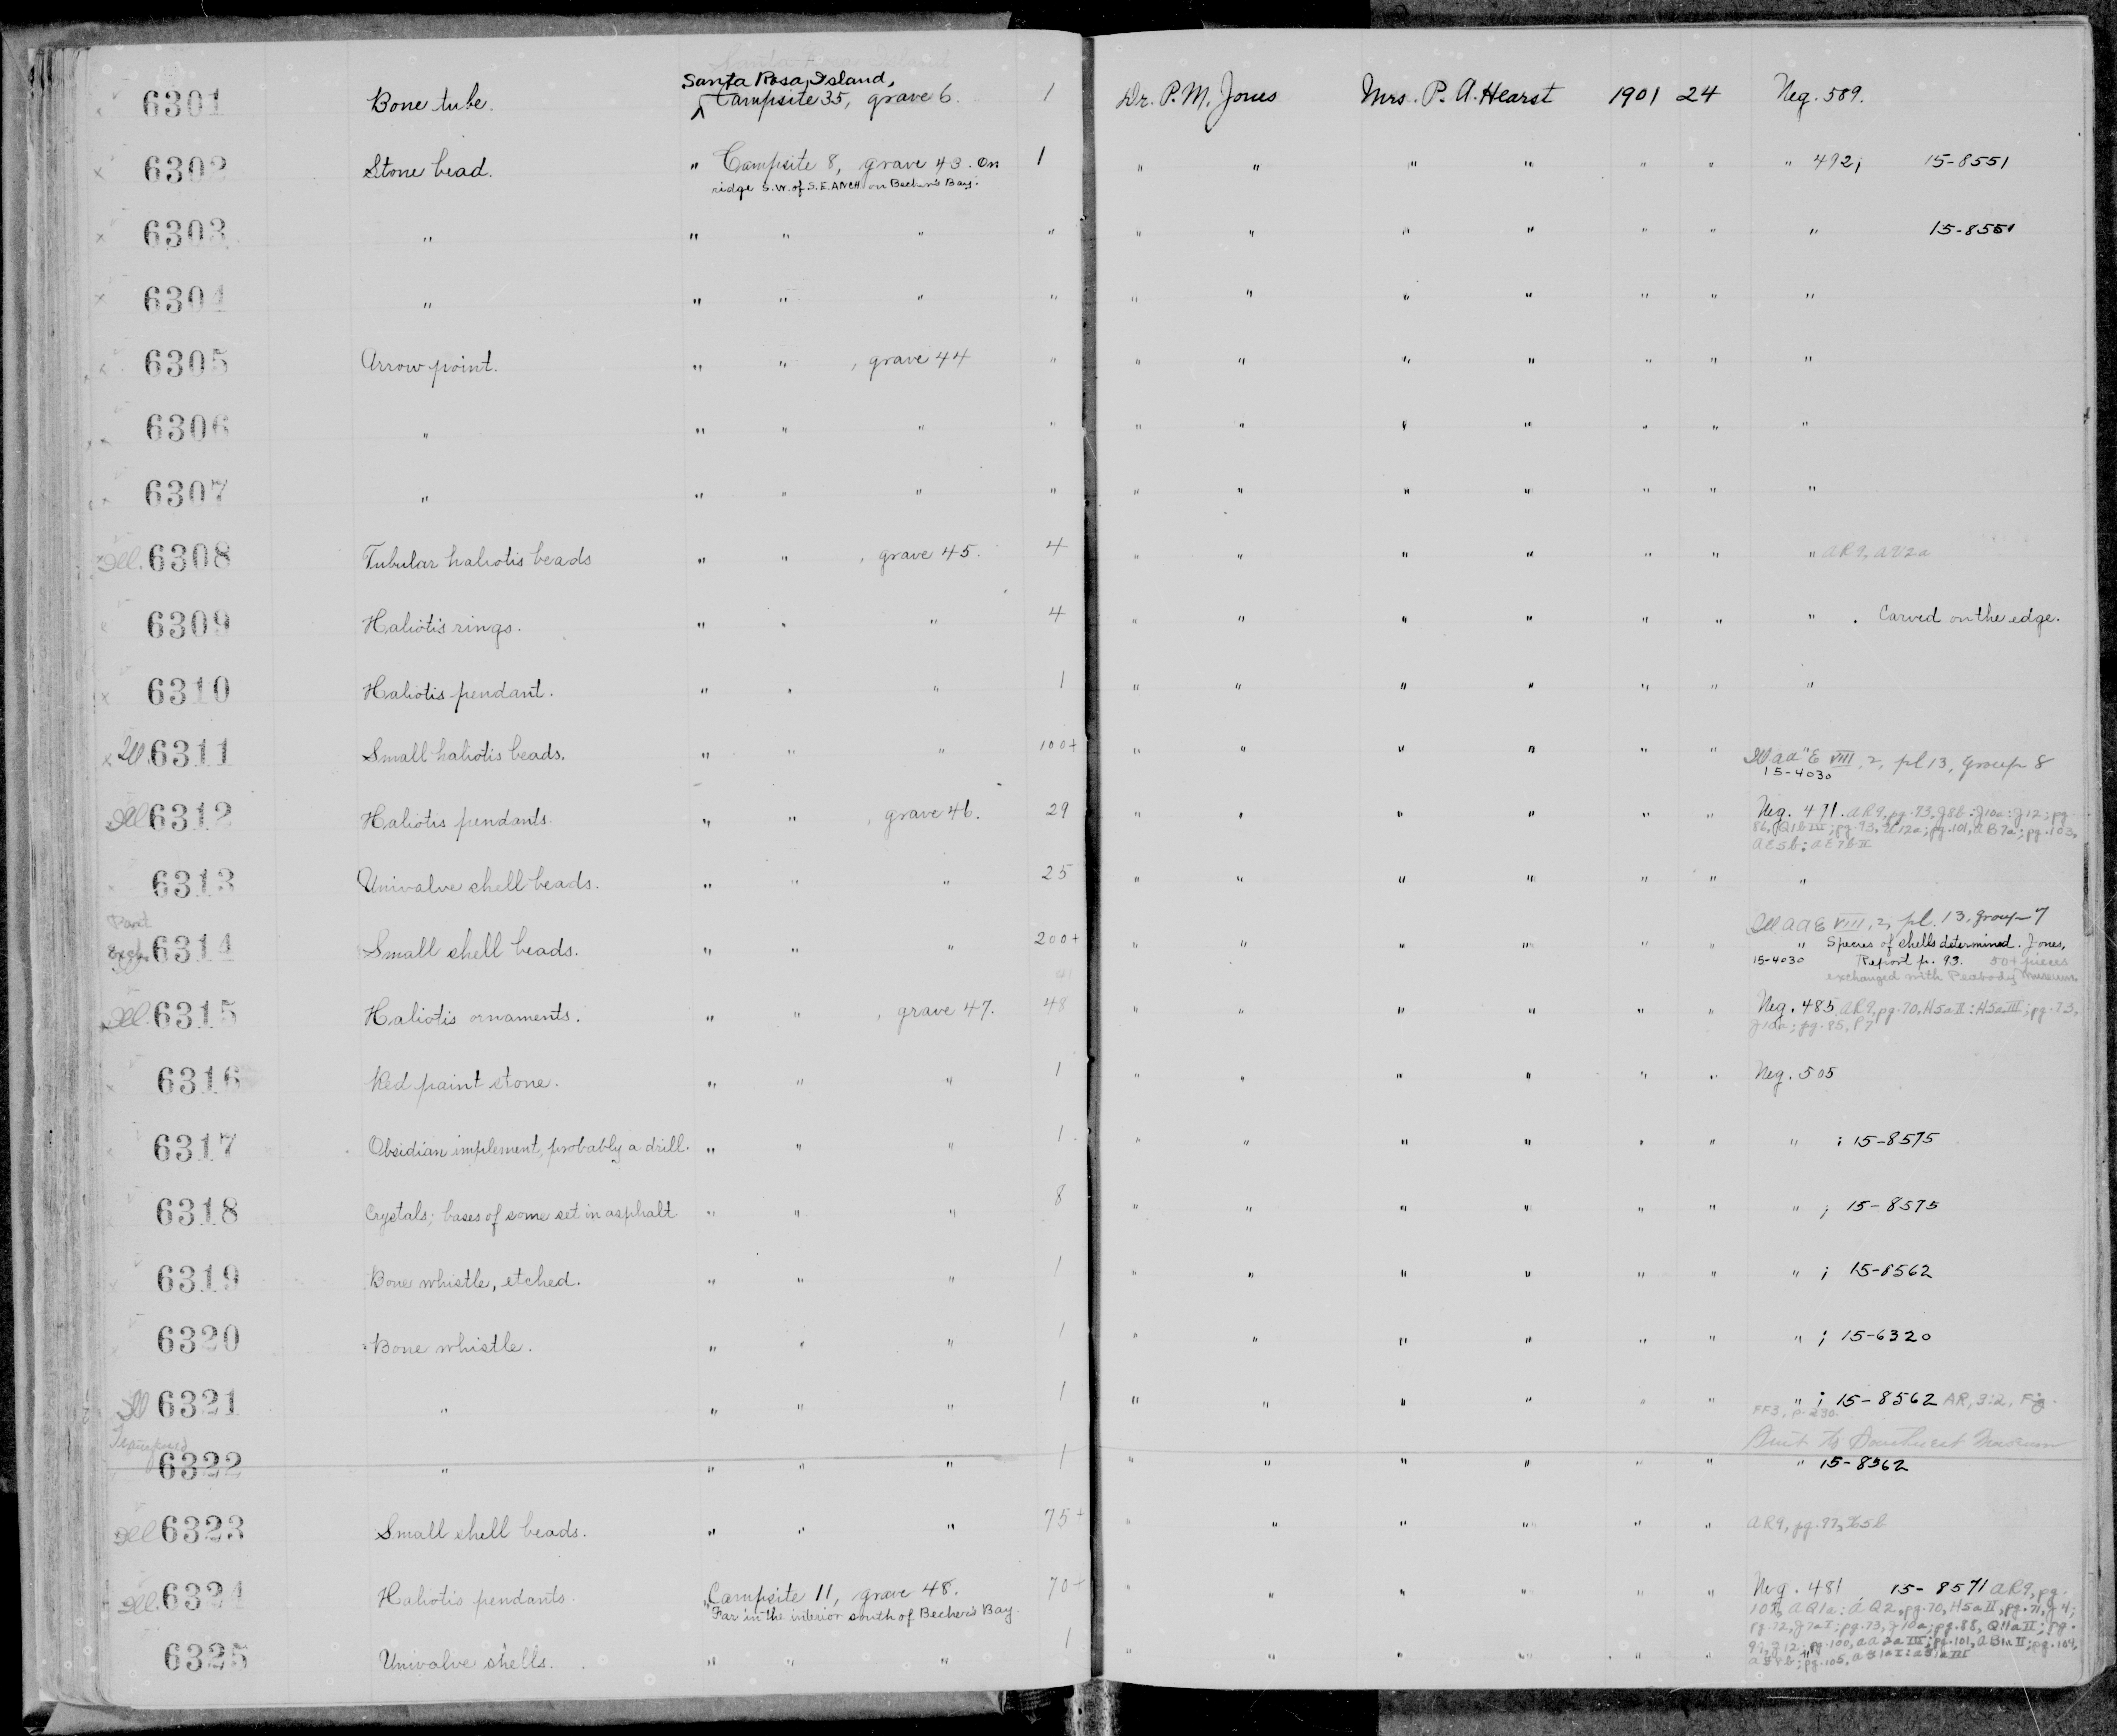 Santa Rosa Island
Santa Rosa Island,
6301 Bone tube. Campsite 35, grave 6. 1 Dr. P. M. Jones Mrs. P. A. Hearst 1901 24 Neg. 589.
6302 Stone bead. " Campsite 8, grave 43. On 1 " " " " " " " 492; 15-8551
ridge S.W. of S.E. Anch on Becher's Bay.
6303 " " " " " " " " " " " " 15-8551
6304 " " " " " " " " " " " "
6305 Arrow point. " " , grave 44 " " " " " " " "
6306 " " " " " " " " " " " "
6307 " " " " " " " " " " " "
Ill. 6308 Tubular haliotis beads " " , grave 45. 4 " " " " " " " AR9, AV2a
6309 Haliotis rings. " " " 4 " " " " " " " . Carved on the edge.
6310 Haliotis pendant. " " " 1 " " " " " " "
Ill. 6311 Small haliotis beads. " " " 100+ " " " " " " Ill AA" E VIII, 2, pl 13, Group 8
15-4030
Ill 6312 Haliotis pendants. " " , grave 46. 29 " " " " " " Neg. 471. AR9, pg. 73, J8b: J10a: J12; pg.
86, Q1b III; pg. 93, U12a; pg. 101, AB7a; pg. 103,
AE5b: AE7b II
6313 Univalve shell beads. " " " 25 " " " " " " "
Part Ill AAE VIII, 2, pl. 13, group 7
Exch. 6314 Small shell beads. " " " 200+ " " " " " " " Species of shells determined. Jones,
15-4030 Report p. 93. 50+ pieces
exchanged with Peabody Museum
41
Ill. 6315 Haliotis ornaments. " " , grave 47. 48 " " " " " " Neg. 485. AR9, pg. 70, H5a II: H5a III; pg. 73,
J10a; pg. 85, P7
6316 Red paint stone. " " " 1 " " " " " " Neg. 505
6317 Obsidian implement, probably a drill. " " " 1. " " " " " " " ; 15-8575
6318 Crystals; bases of some set in asphalt " " " 8 " " " " " " " ; 15-8575
6319 Bone whistle, etched. " " " 1 " " " " " " " ; 15-8562
6320 Bone whistle. " " " 1 " " " " " " " ; 15-6320
Ill 6321 " " " " 1 " " " " " " " ; 15-8562 AR, 9:2, Fig.
FF3, p. 230.
Sent to Southwest Museum
6322 " " " " 1 " " " " " " " 15-8562
Ill 6323 Small shell beads. " " " 75+ " " " " " " AR9, pg. 97, X5b
Ill. 6324 Haliotis pendants. " Campsite 11, grave 48. 70+ " " " " " " Neg. 481 15-8571 AR9, pg.
Far in the interior south of Becher's Bay. 107, AQ1a: AQ2, pg. 70, H5a II, pg. 71, J4;
pg. 72, J7a I; pg. 73, J10a; pg. 88, Q11a II; pg.
J12; pg. 100, AA2a III; pg. 101, AB1a II; pg. 104,
6325 Univalve shells. " " " 1 " " " " " " "
pg. 105,